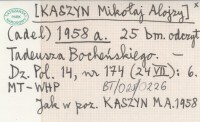 [KASZYN Mikołaj Alojzy] x
(adel) 1958 a. 25 bm. odczyt
Tadeusza Bocheńskiego. —
Dz. Pol. 14, nr 174 (24 VII): 6.
MT-WHP BT/021/0226
Jak w poz. KASZYN M.A. 1958